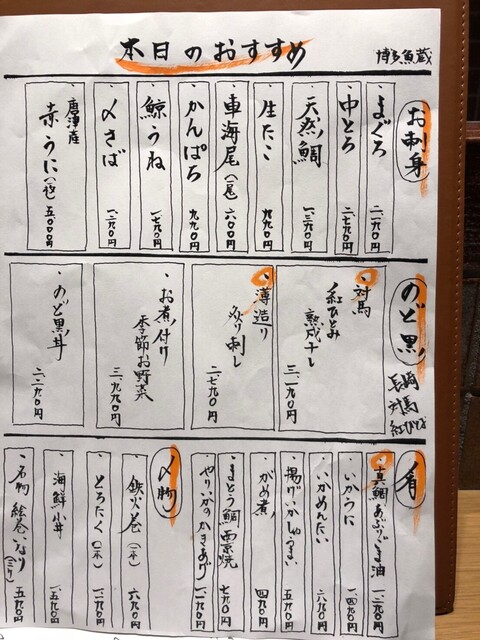 本日のおすすめ
博多魚蔵
お刺身
・まぐろ 二、一七〇円
・中とろ 二、七九〇円
・天然鯛 一、三九〇円
・生たこ 九九〇円
・車海尾(一尾) 六〇〇円
・かんぱち 九九〇円
・鯨うね 一、七九〇円
・〆さば 一、二九〇円
・唐津産
赤うに 五、〇〇〇円
のど黒
長崎
対馬
紅ひとみ
・対馬
紅ひとみ
熟成干し 三、一九〇円
・薄造り
炙り刺し 二、七九〇円
・お煮付け
季節お野菜 三、九九〇円
・のど黒丼 二、二九〇円
肴
・真鯛あぶりごま油 一、二九〇円
・いかうに 一、四九〇円
・いかめんたい 八九〇円
・揚げいかしゅうまい 五九〇円
・がめ煮 四九〇円
・まとう鯛西京焼 七九〇円
・やりいかのかきあげ 一、二九〇円
〆物
・鉄火巻(一本) 六九〇円
・とろたく(一本) 一、二九〇円
・海鮮小丼 一、五九〇円
・名物 絵巻いなり(三ケ) 一、五九〇円